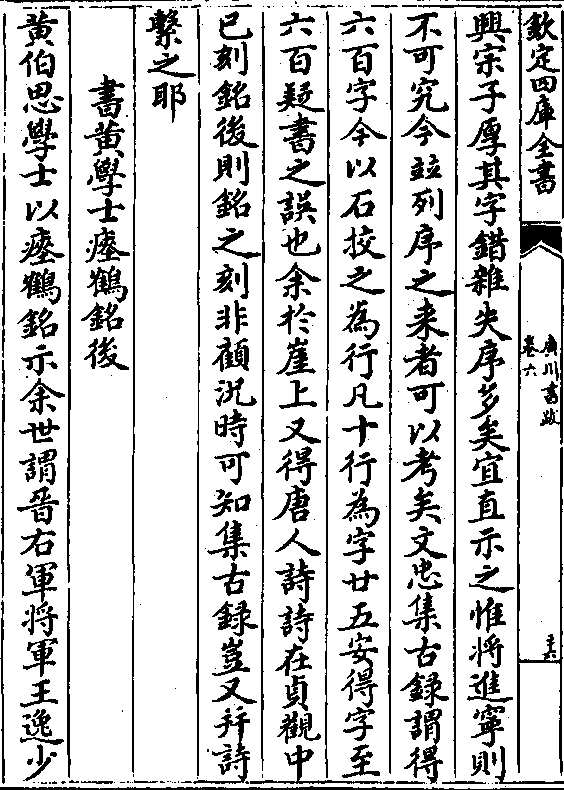 欽定四庫全書
廣川書跋
卷六
興宗子厚其字錯雜失序多矣宜直示之惟將進寧則
不可究今竝列序之来者可以考矣文忠集古録謂得
六百字今以石挍之為行凡十行為字廿五安得字至
六百疑書之誤也余扵崖上又得唐人詩詩在貞觀中
已刻銘後則銘之刻非顧況時可知集古録豈又并詩
繫之耶
書黄學士瘞鶴銘後
黄伯思學士以瘞鶴銘示余世謂晉右軍将軍王逸少